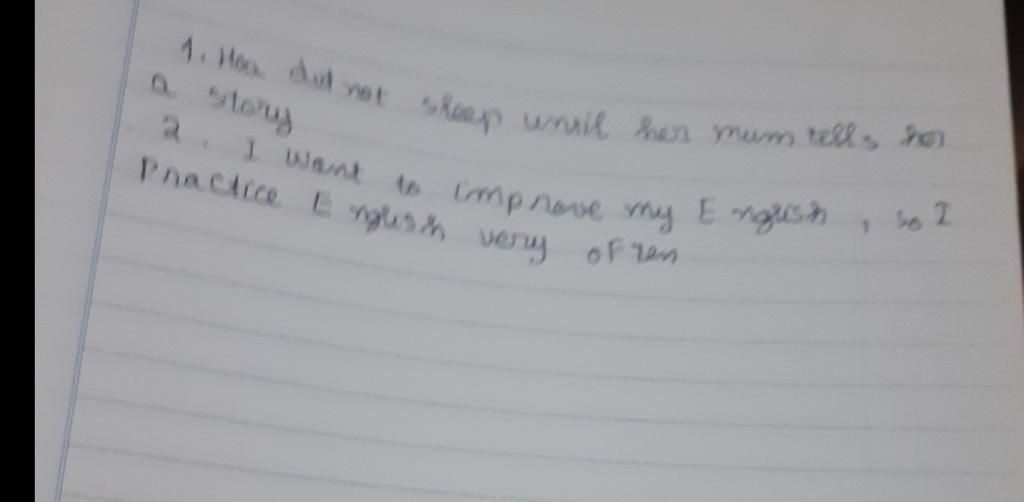 1. Hoa did not sleep until her mum tells her
a story
2. I want to improve my English, so I
Practice English very often